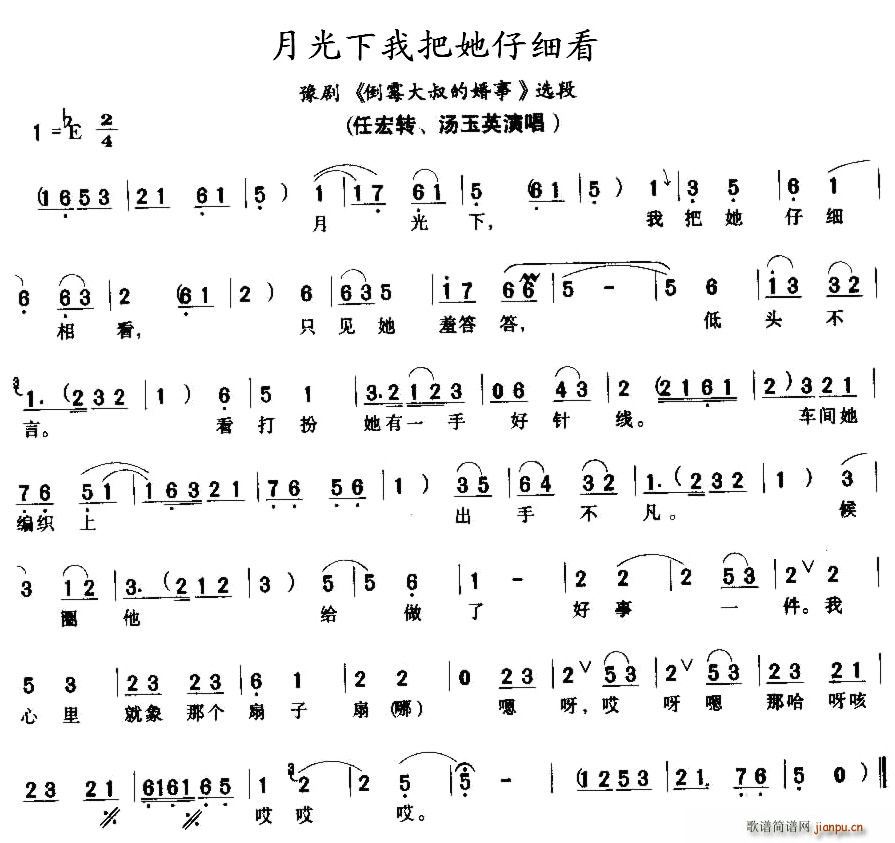 月光下我把她仔细看
豫剧《倒霉大叔的婚事》选段
(任宏转、汤玉英演唱)
1=♭E 2/4
(1653 | 21 61 | 5) 1 | 17 61 | 5 (61 | 5) 1 | 3 5 | 6 1 |
月 光 下, 我 把 她 仔 细
6 63 | 2 (61 | 2) 6 | 635 | i7 66 | 5 - | 5 6 | i3 32 |
相 看, 只 见 她 羞答 答, 低 头 不
3 1. (232 | 1) 6 | 5 1 | 3.2 123 | 06 43 | 2 (2161 | 2) 321 |
言。 看 打 扮 她有一 手 好 针 线。 车间她
76 51 | 16321 | 76 56 | 1) 35 | 64 32 | 1. (232 | 1) 3 |
编织 上 出 手 不 凡。 候
3 12 | 3. (212 | 3) 5 | 5 6 | 1 - | 2 2 | 2 53 | 2∨ 2 |
圈 他 给 做 了 好 事 一 件。我
5 3 | 23 23 | 6 1 | 2 2 | 0 23 | 2∨ 53 | 2∨ 53 | 23 21 |
心 里 就象 那个 扇 子 扇 (哪) 嗯 呀,哎 呀 嗯 那哈 呀咳
23 21 | 6161 65 | 1 3 2 | 2 5 | 5 - | (1253 | 21. 76 | 5 0) ‖
哎 哎 哎。
歌谱简谱网 jianpu.cn